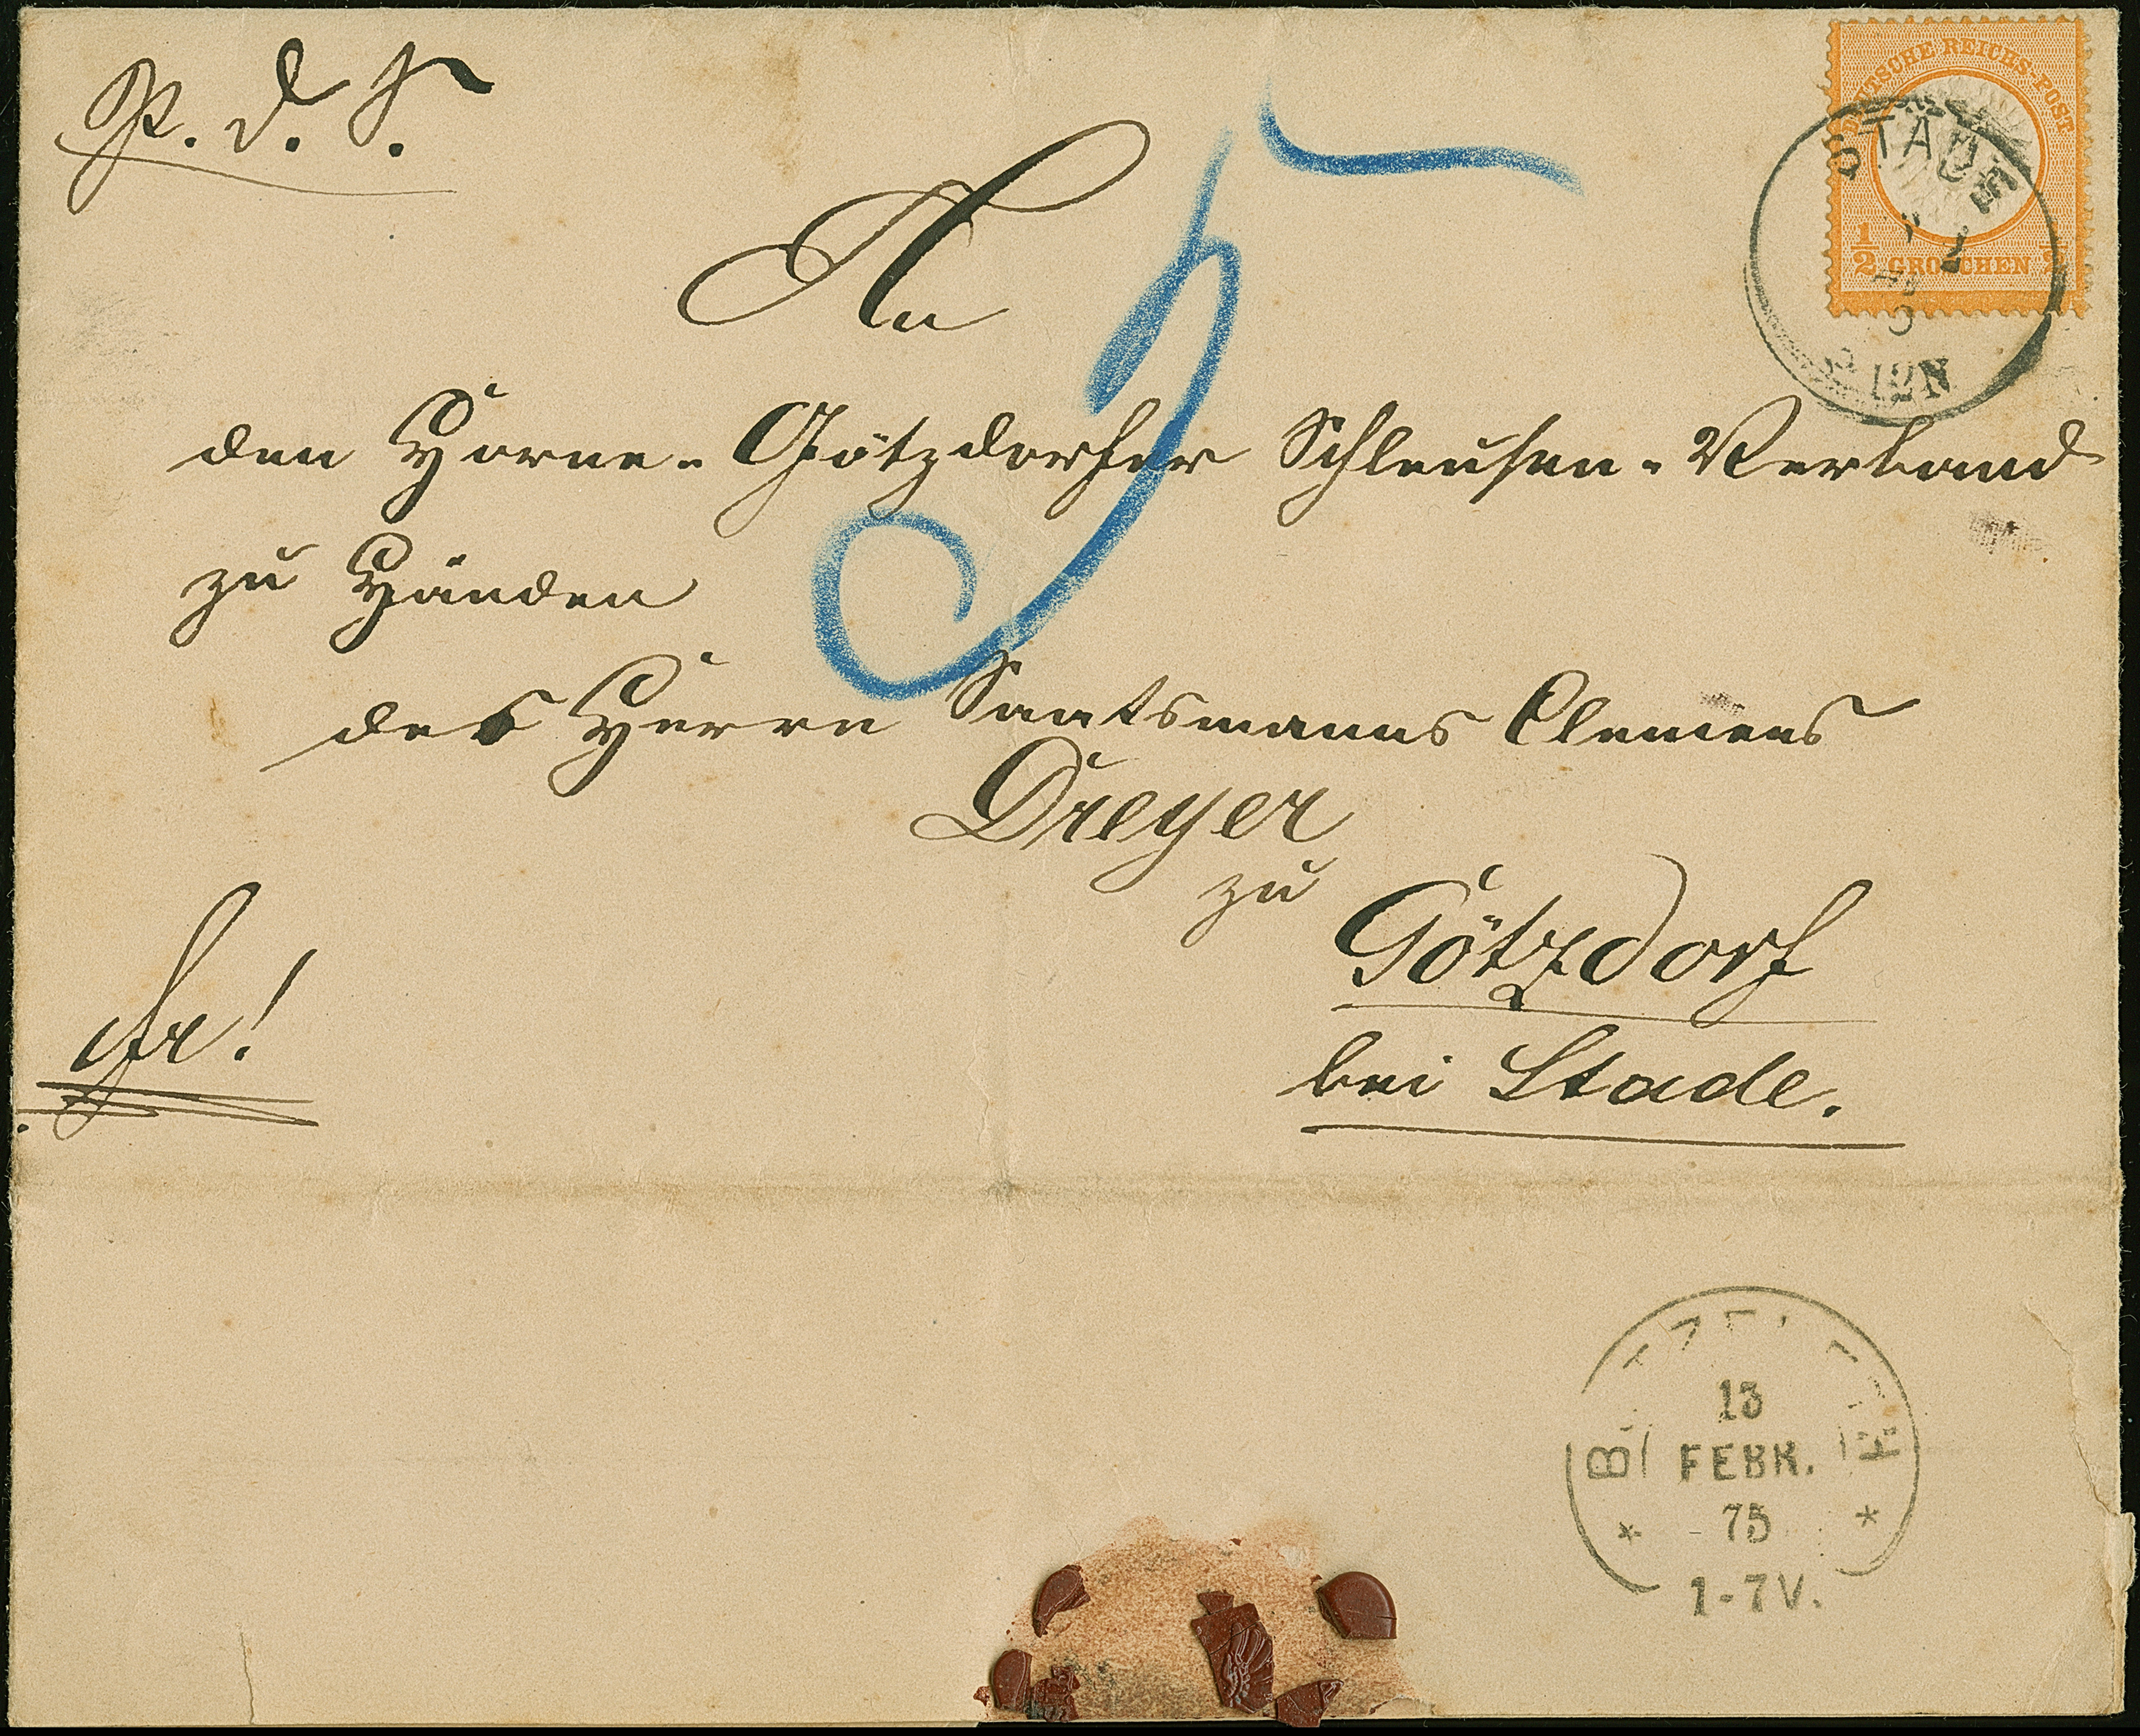 P. d. S.
DEUTSCHE REICHS-POST
1/2 GROSCHEN 1/2
STADE
12N
An
den Horne-Götzdorfer Schleusen-Verband
zu Händen
des Herrn Clemens
Dreyer
zu
Götzdorf
bei Stade.
fr!
5
13
FEBR.
75
1-7V.